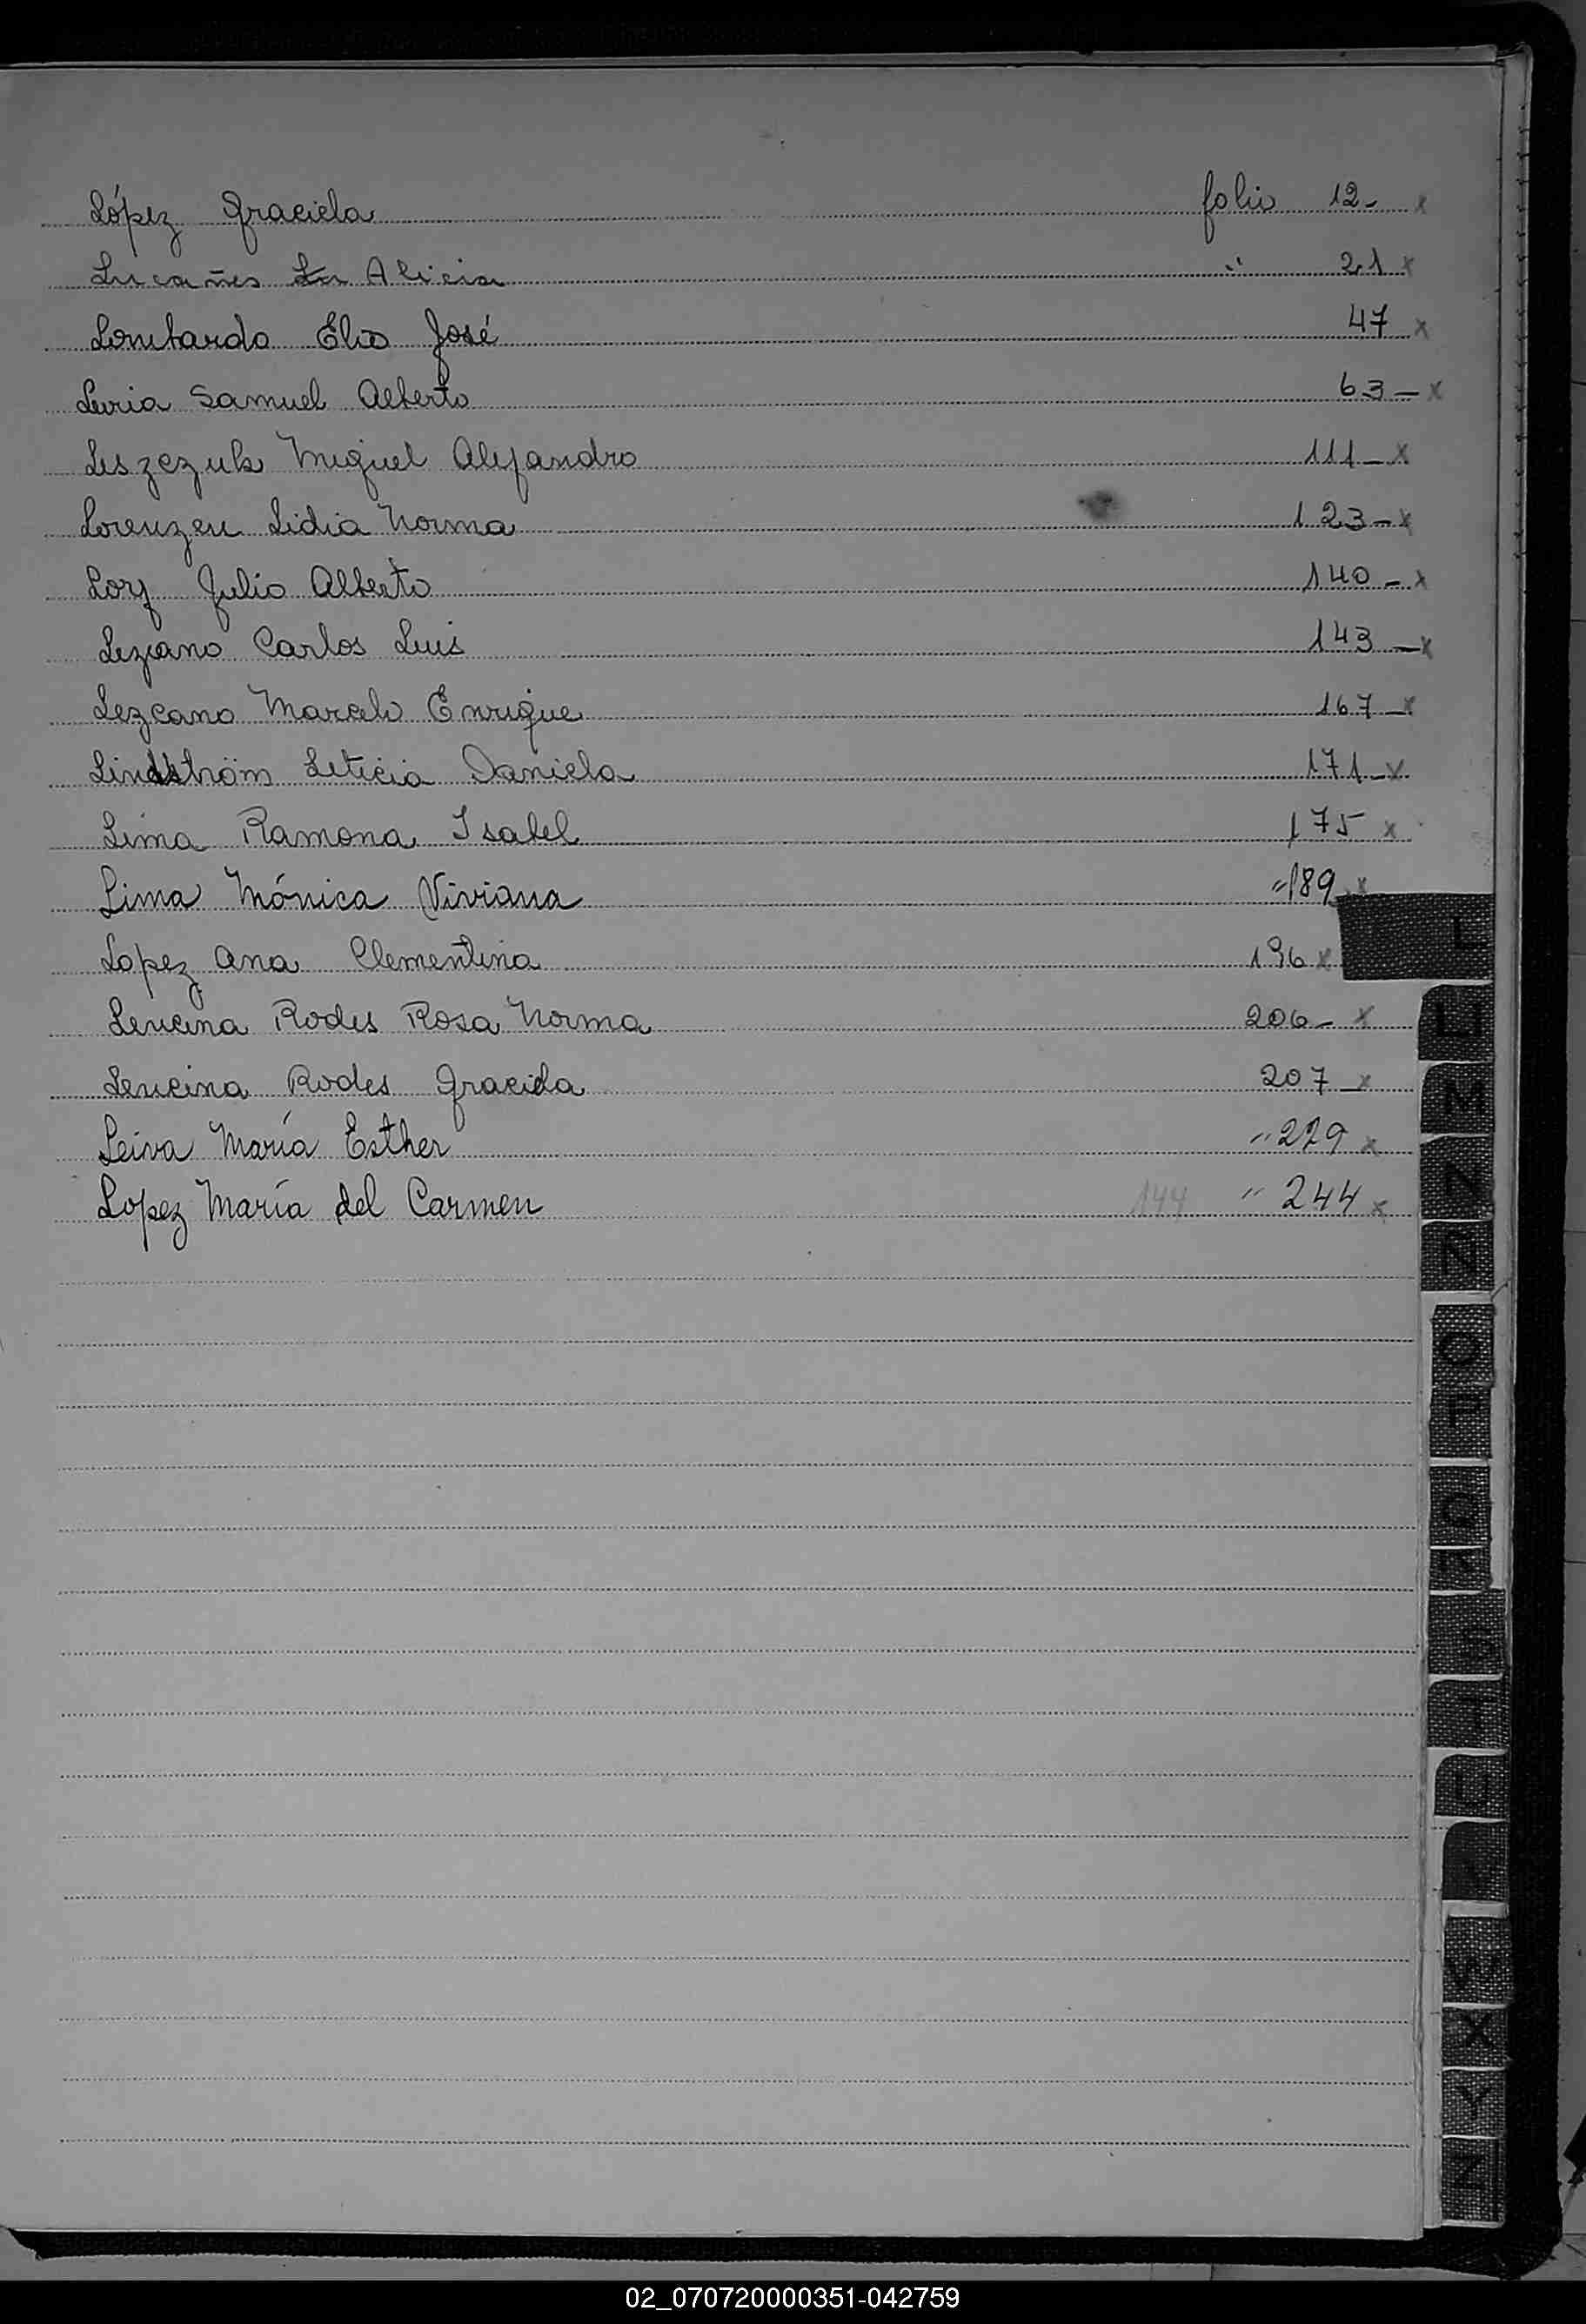 López Graciela folio 12- x
Lucañes Lu Alicia " 21 x
Lombardo Elio José 47 x
Luria Samuel Alberto 63- x
Leszczuk Miguel Alejandro 111- x
Lorenzen Lidia Norma 123- x
Lory Julio Alberto 140- x
Lezcano Carlos Luis 143- x
Lezcano Marcelo Enrique 167- x
Lindström Leticia Daniela 171- x
Lima Ramona Isabel 175 x
Lima Mónica Viviana "189 x
Lopez Ana Clementina 196 x
Lencina Rodes Rosa Norma 206- x
Lencina Rodes Graciela 207- x
Leiva María Esther "229 x
Lopez María del Carmen 144 " 244 x
L
LI
M
N
Ñ
O
P
Q
R
S
T
U
W
X
Y
Z
02_070720000351-042759